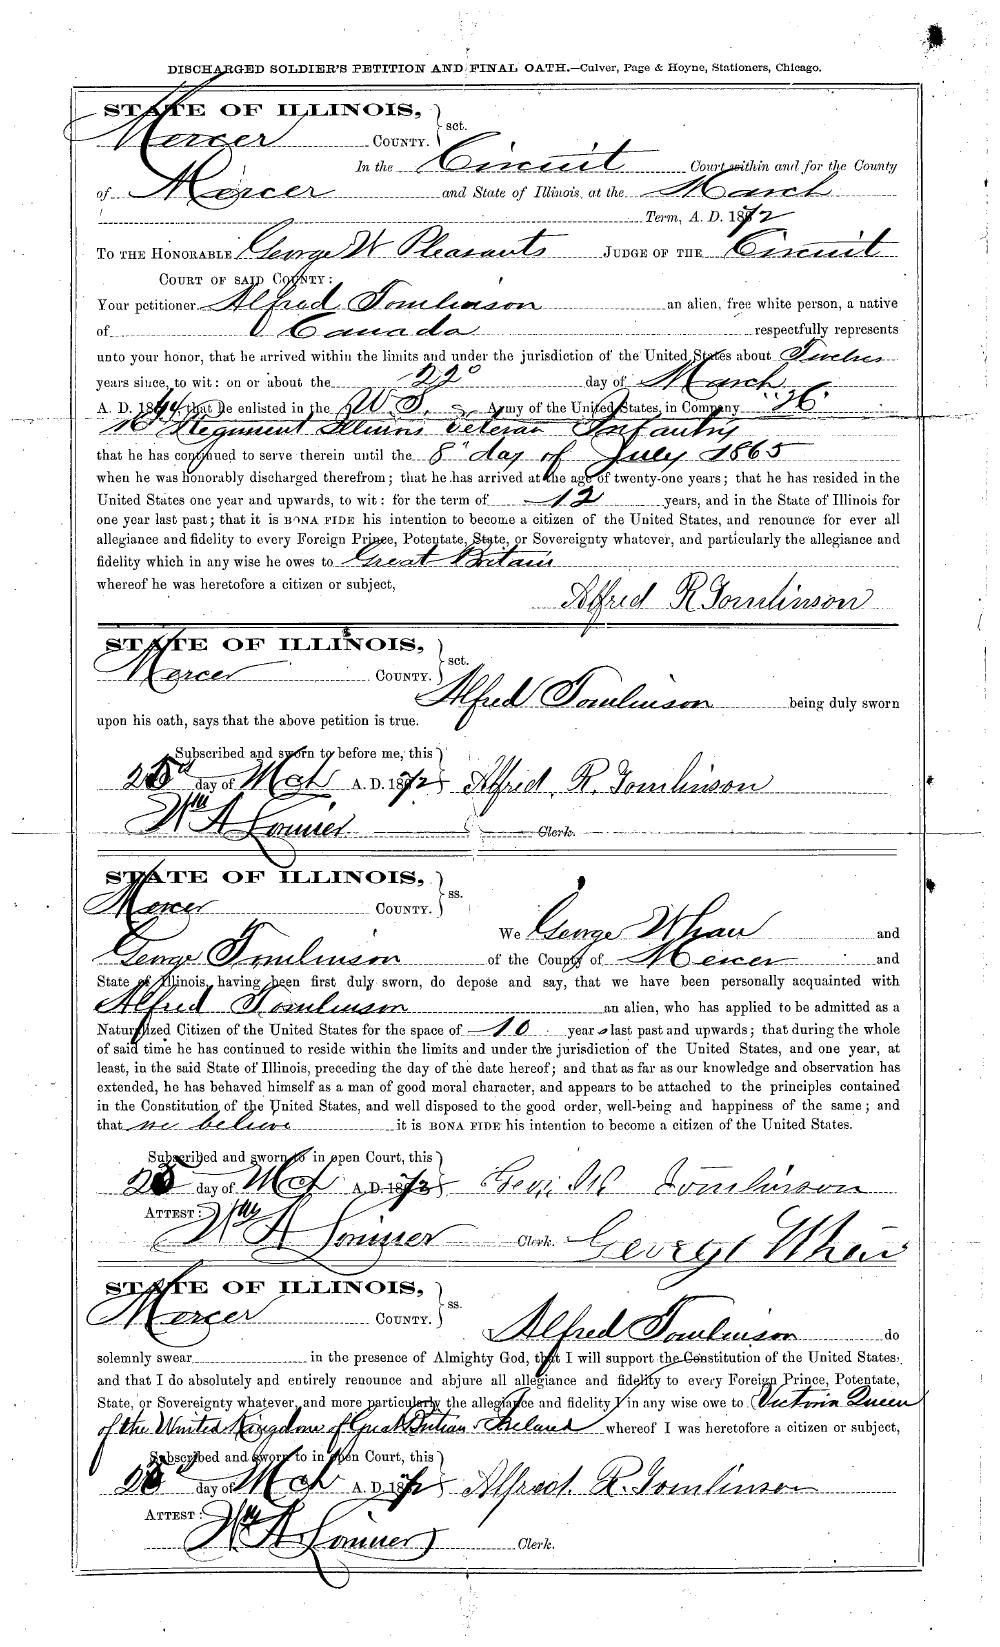 DISCHARGED SOLDIER'S PETITION AND FINAL OATH.—Culver, Page & Hoyne, Stationers, Chicago.
STATE OF ILLINOIS,
Mercer COUNTY. } sct.
In the Circuit Court within and for the County
of Mercer and State of Illinois, at the March
Term, A. D. 1872
TO THE HONORABLE George W Pleasants JUDGE OF THE Circuit
COURT OF SAID COUNTY:
Your petitioner Alfred Tomlinson an alien, free white person, a native
of Canada respectfully represents
unto your honor, that he arrived within the limits and under the jurisdiction of the United States about Twelve
years since, to wit: on or about the 22d day of March
A. D. 1864, that he enlisted in the U.S. Army of the United States, in Company
Regiment Illinois Veteran Infantry
that he has continued to serve therein until the 8" day of July 1865
when he was honorably discharged therefrom; that he has arrived at the age of twenty-one years; that he has resided in the
United States one year and upwards, to wit: for the term of —12 years, and in the State of Illinois for
one year last past; that it is BONA FIDE his intention to become a citizen of the United States, and renounce for ever all
allegiance and fidelity to every Foreign Prince, Potentate, State, or Sovereignty whatever, and particularly the allegiance and
fidelity which in any wise he owes to Great Britain
whereof he was heretofore a citizen or subject,
Alfred R Tomlinson
STATE OF ILLINOIS,
Mercer COUNTY. } sct.
Alfred Tomlinson being duly sworn
upon his oath, says that the above petition is true.
Subscribed and sworn to before me, this
day of Mch A. D. 1872 Alfred. R. Tomlinson
Wm A Lorimer Clerk.
STATE OF ILLINOIS,
Mercer COUNTY. } ss.
We George Whan and
George Tomlinson of the County of Mercer and
State of Illinois, having been first duly sworn, do depose and say, that we have been personally acquainted with
Alfred Tomlinson an alien, who has applied to be admitted as a
Naturalized Citizen of the United States for the space of —10 years last past and upwards; that during the whole
of said time he has continued to reside within the limits and under the jurisdiction of the United States, and one year, at
least, in the said State of Illinois, preceding the day of the date hereof; and that as far as our knowledge and observation has
extended, he has behaved himself as a man of good moral character, and appears to be attached to the principles contained
in the Constitution of the United States, and well disposed to the good order, well-being and happiness of the same; and
that we believe it is BONA FIDE his intention to become a citizen of the United States.
Subscribed and sworn to in open Court, this
day of Mch A. D. 1872 Tomlinson
ATTEST: Wm A Lorimer Clerk. George Whan
STATE OF ILLINOIS,
Mercer COUNTY. } ss.
I, Alfred Tomlinson do
solemnly swear in the presence of Almighty God, that I will support the Constitution of the United States,
and that I do absolutely and entirely renounce and abjure all allegiance and fidelity to every Foreign Prince, Potentate,
State, or Sovereignty whatever, and more particularly the allegiance and fidelity I in any wise owe to Victoria Queen
of the United Kingdom of Great Britian & Ireland whereof I was heretofore a citizen or subject,
Subscribed and sworn to in open Court, this
day of Mch A. D. 1872 Alfred. R. Tomlinson
ATTEST: Wm A. Lorimer
Clerk.